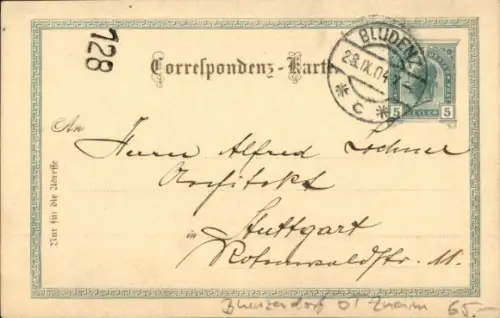 128
Correspondenz-Karte
BLUDENZ
28.IX.04
* C *
5 HELLER 5
An
Herrn Alfred Lochner
Architekt
in Stuttgart
Rotenwaldstr. 11.
Nur für die Adresse
65.-